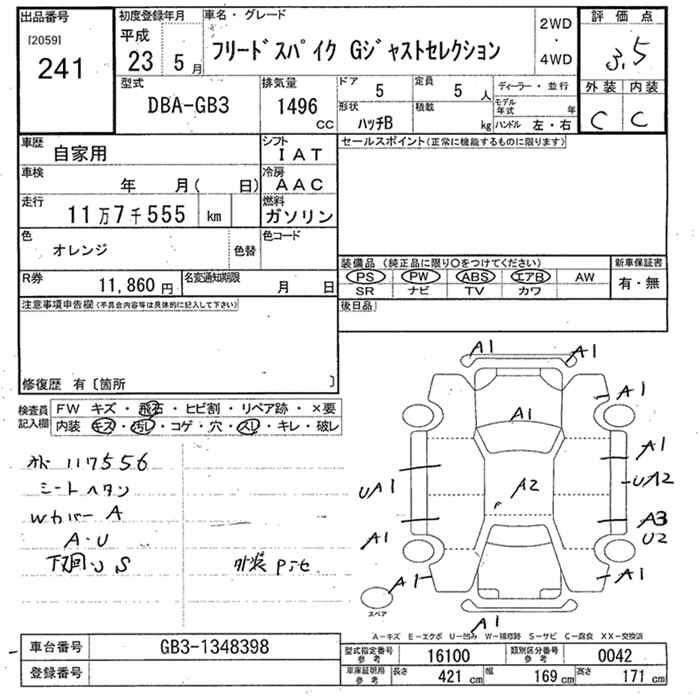 出品番号
[2059]
241
初度登録年月
平成
23 5 月
車名・グレード
フリードスパイク Gジャストセレクション
2WD
・
4WD
評価点
3.5
外装 内装
C C
型式
DBA-GB3
排気量
1496
CC
ドア
5
定員
5 人
形状
ハッチB
積載
kg
ディーラー・並行
モデル年式 年
ハンドル 左・右
車歴
自家用
シフト
IAT
車検
年 月( 日)
冷房
AAC
走行
11万7千555 km
燃料
ガソリン
色
オレンジ
色替
色コード
R券
11,860 円
名変通知期限
月 日
セールスポイント(正常に機能するものに限ります)
装備品(純正品に限り○をつけてください)
PS PW ABS エアB AW
SR ナビ TV カワ
新車保証書
有・無
後日品
注意事項申告欄(不具合内容等は具体的に記入して下さい)
修復歴 有〔箇所 〕
検査員記入欄
FW キズ・飛石・ヒビ割・リペア跡・×要
内装 キズ・汚レ・コゲ・穴・スレ・キレ・破レ
117556
シートヘタリ
Wカバー A
A・U
下回リS
外装
A1
A1
A1
A1
A1
UA1
A2
UA2
A3
U2
A1
A1
A1
A1
スペア
A-キズ E-エクボ U-凹み W-補修跡 S-サビ C-腐食 XX-交換済
車台番号
GB3-1348398
登録番号
型式指定番号
参考
16100
類別区分番号
参考
0042
車庫証明用
参考
長さ
421 cm
幅
169 cm
高さ
171 cm